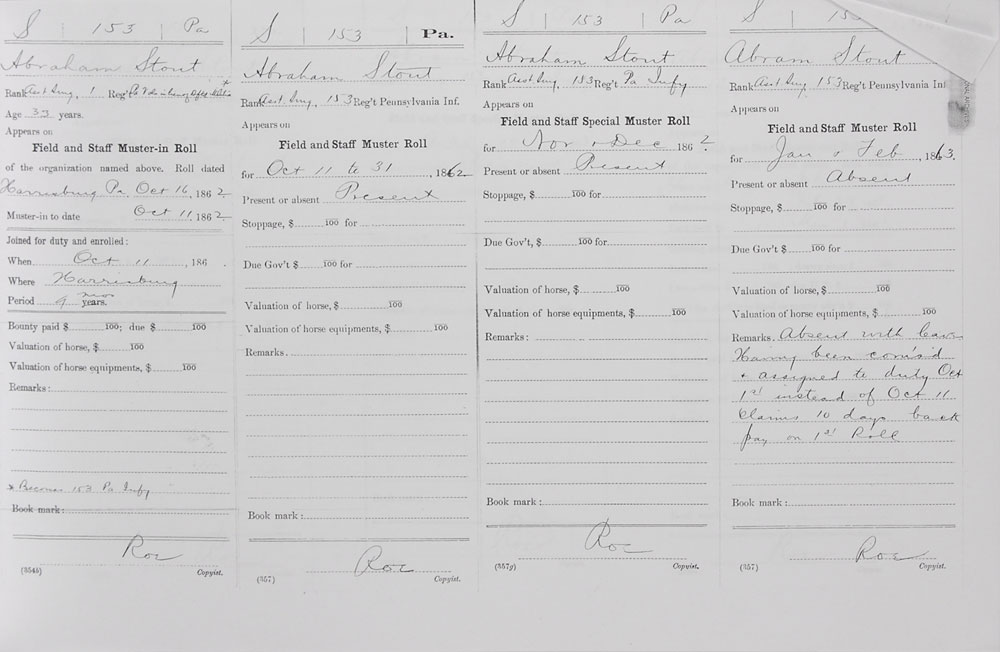 S | 153 | Pa
Abraham Stout
Rank Asst Surg, 1 Reg't
Age years.
Appears on
Field and Staff Muster-in Roll
of the organization named above. Roll dated
Harrisburg Pa Oct 16, 1862
Muster-in to date Oct 11, 1862
Joined for duty and enrolled:
When Oct 11, 186 .
Where Harrisburg
Period 9 mos years.
Bounty paid $ 100; due $ 100
Valuation of horse, $ 100
Valuation of horse equipments, $ 100
Remarks:
* Becomes 153 Pa Infy
Book mark:
Roe
(354b) Copyist.
S | 153 | Pa.
Abraham Stout
Rank Asst Surg, 153 Reg't Pennsylvania Inf.
Appears on
Field and Staff Muster Roll
for Oct 11 to 31, 1862
Present or absent Present
Stoppage, $ 100 for
Due Gov't, $ 100 for
Valuation of horse, $ 100
Valuation of horse equipments, $ 100
Remarks.
Book mark:
Roe
(357) Copyist.
S | 153 | Pa
Abraham Stout
Rank Asst Surg, 153 Reg't Pa Infy
Appears on
Field and Staff Special Muster Roll
for Nov & Dec 1862
Present or absent Present
Stoppage, $ 100 for
Due Gov't, $ 100 for
Valuation of horse, $ 100
Valuation of horse equipments, $ 100
Remarks:
Book mark:
Roe
(357g) Copyist.
S | 153
Abram Stout
Rank Asst Surg, 153 Reg't Pennsylvania Inf
Appears on
Field and Staff Muster Roll
for Jan & Feb, 1863.
Present or absent Absent
Stoppage, $ 100 for
Due Gov't $ 100 for
Valuation of horse, $ 100
Valuation of horse equipments, $ 100
Remarks: Absent with leave
Having been coms'd
& assigned to duty Oct
1st instead of Oct 11
Claims 10 days back
pay on 1st Roll
Book mark:
Roe
(357) Copyist.